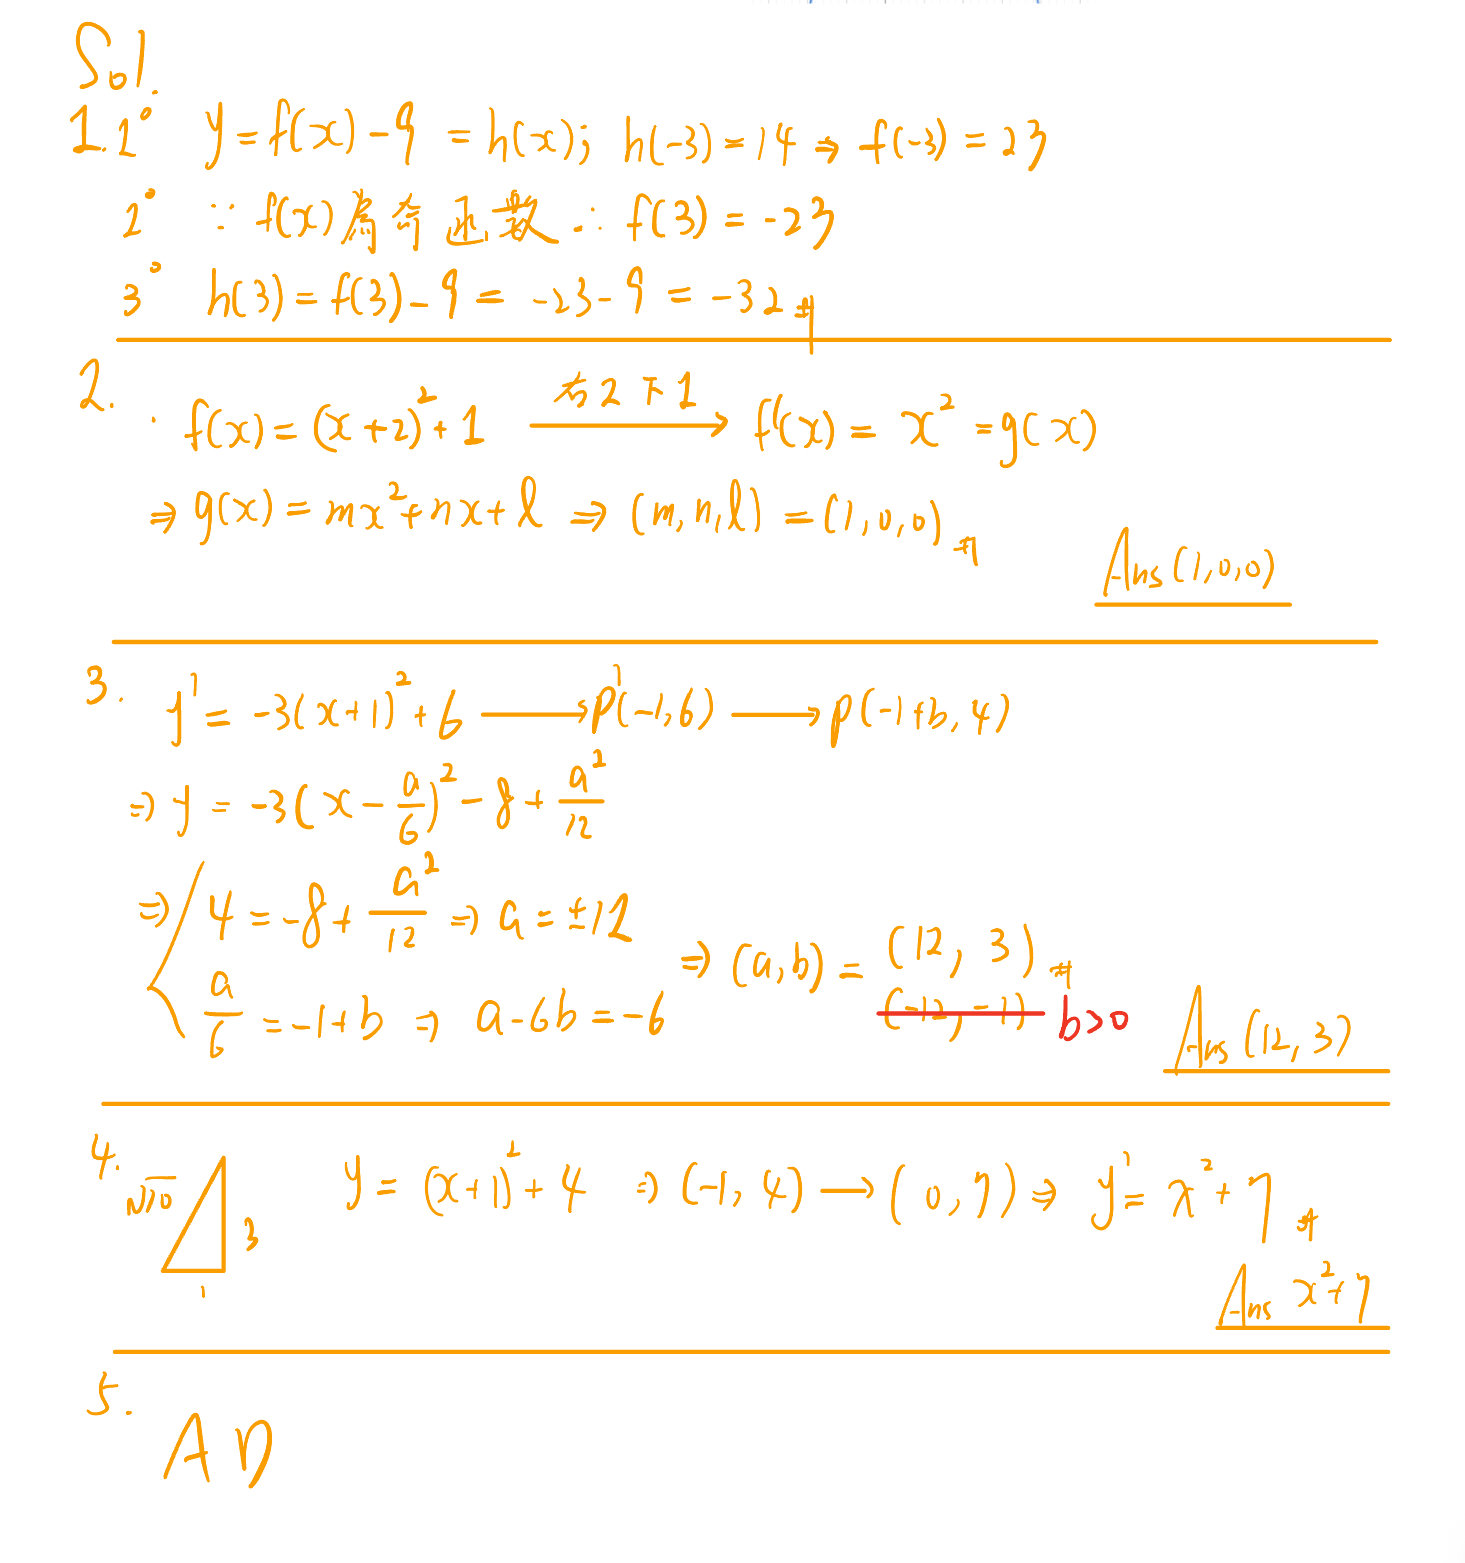 Sol.
1. 1° y = f(x) - 9 = h(x); h(-3) = 14 ⇒ f(-3) = 23
2° ∵ f(x)為奇函數 ∴ f(3) = -23
3° h(3) = f(3) - 9 = -23 - 9 = -32 #
2.
f(x) = (x+2)² + 1 右2下1 → f'(x) = x² = g(x)
⇒ g(x) = mx² + nx + l ⇒ (m, n, l) = (1, 0, 0) #
Ans (1, 0, 0)
3. y' = -3(x+1)² + 6 → P'(-1, 6) → P(-1+b, 4)
⇒ y = -3(x - a/6)² - 8 + a²/12
⇒ 4 = -8 + a²/12 ⇒ a = ±12
a/6 = -1 + b ⇒ a - 6b = -6
⇒ (a, b) = (12, 3) #
(-12, -1) b>0
Ans (12, 3)
4. √10 3 1 y = (x+1)² + 4 ⇒ (-1, 4) → (0, 7) ⇒ y' = x² + 7 #
Ans x² + 7
5.
A D